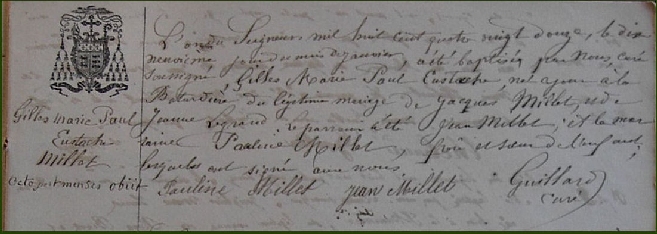 Gilles Marie Paul
Eustache
Millet
Octo post menses obiit
L'an du Seigneur mil huit cent quatre vingt douze, le dix
neuvième jour du mois de janvier, a été baptisé par Nous, curé
soussigné Gilles Marie Paul Eustache, né à la
Batardière du légitime mariage de Jacques Millet et de
Jeanne Legrand. le parrain a été Jean Millet, et la mar
raine Pauline Millet, frère et sœur de l'enfant,
lesquels ont signé avec nous.
Pauline Millet Jean Millet Guillard
curé